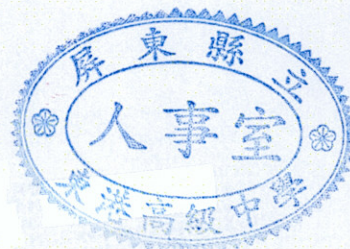 屏東縣立
人事室
東港高級中學